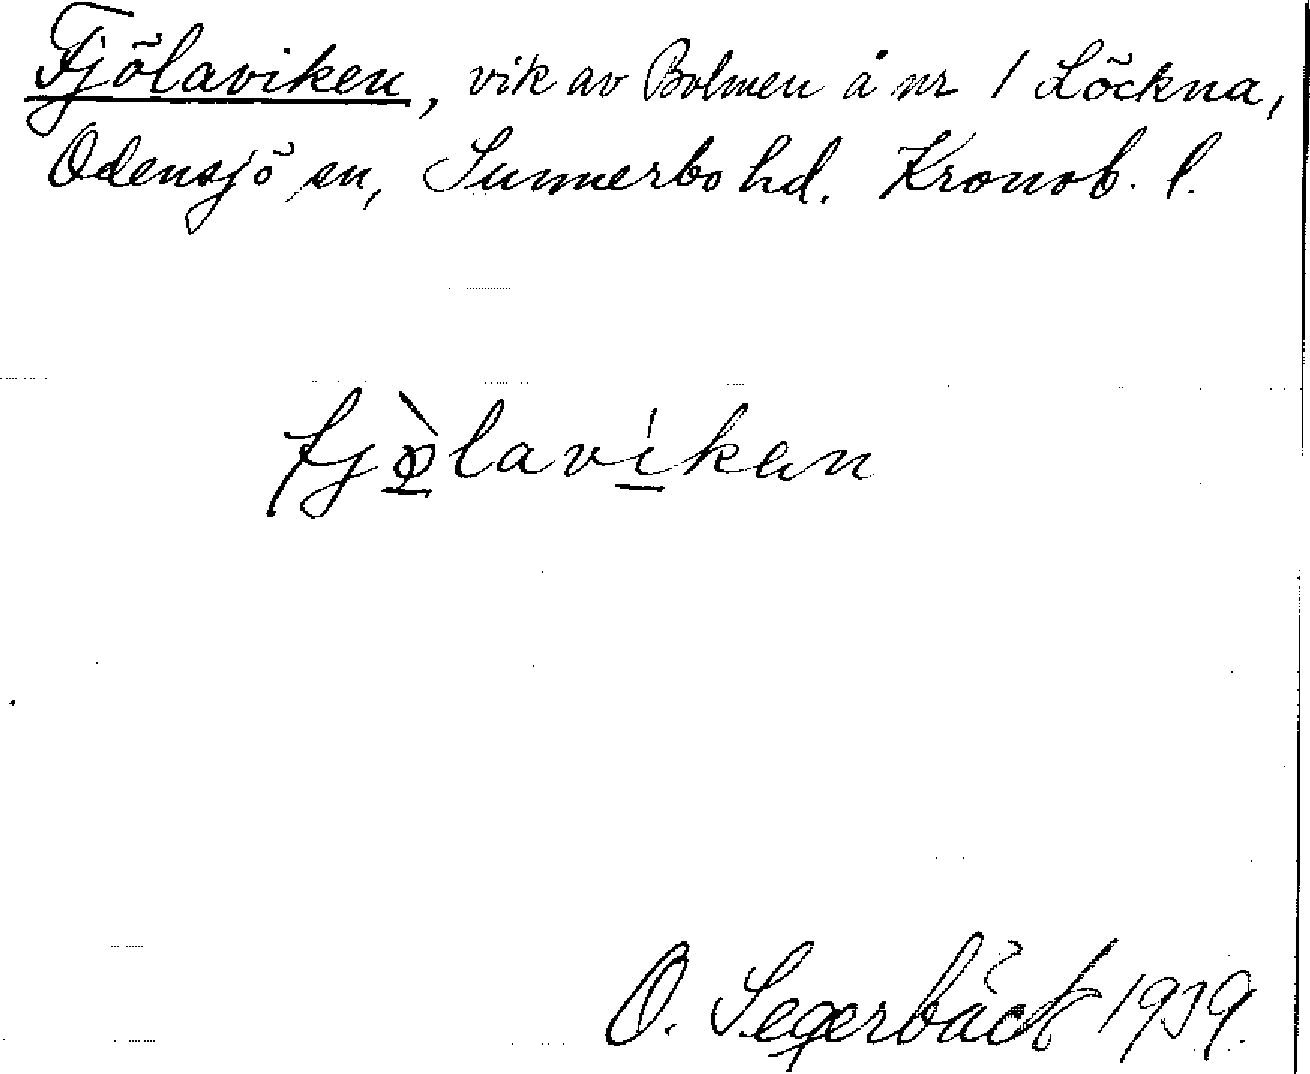 Fjölaviken, vik av Bolmen å nr 1 Löckna,
Odensjö sn, Sunnerbo hd. Kronob. l.
fjø̀lavíkən
O. Segerbäck 1939.